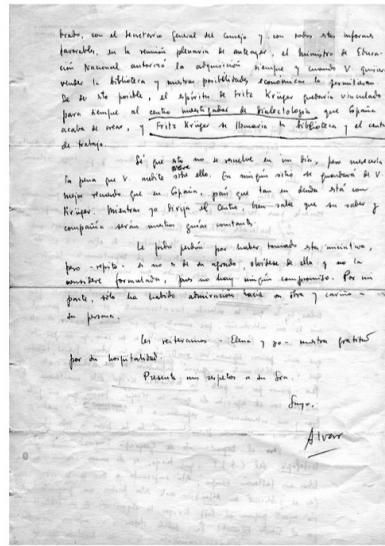 brado, con el Secretario General del Consejo y, con todos estos informes
favorables, en la reunión plenaria de anteayer, el Ministro de Educa-
ción Nacional autorizó la adquisición siempre y cuando V. quiera
vender la biblioteca y nuestras posibilidades económicas lo permitieran.
De ser esto posible, el espíritu de Fritz Krüger quedaría vinculado
para siempre al centro investigador de dialectología que España
acaba de crear, y Fritz Krüger se llamaría la biblioteca y el centro
de trabajo.
Sé que esto no se resuelve en un día, pero merecería
la pena que V. medite sobre ello. En ningún sitio se guardará de V.
mejor recuerdo que en España, país que tan en deuda está con
Krüger. Mientras yo dirija el Centro, bien sabe que su saber y
compañía serán nuestras guías constantes.
Le pido perdón por haber tomado esta iniciativa,
pero - repito - si no es de su agrado, olvídese de ella y no la
considere formulada, pues no hay ningún compromiso. Por mi
parte, sólo ha habido admiración hacia su obra y cariño a
su persona.
Les reiteramos - Elena y yo - nuestra gratitud
por su hospitalidad.
Presente mis respetos a su Sra.
Suyo.
Alvar